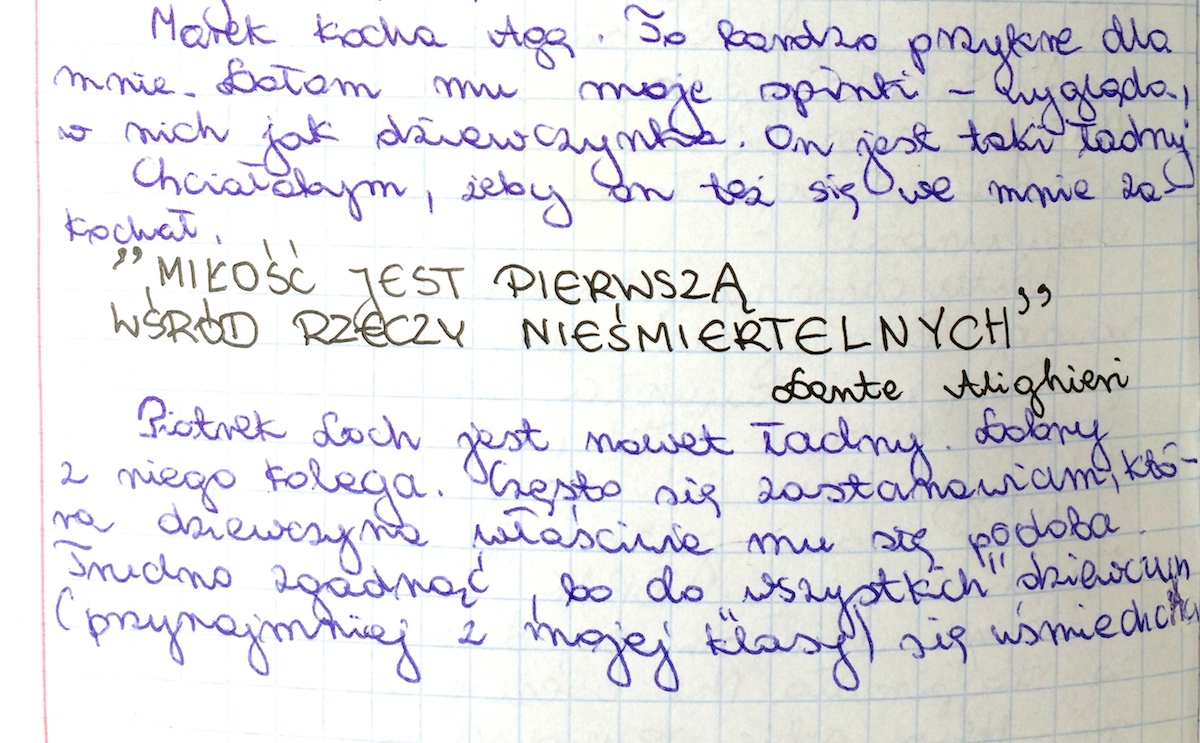 Marek kocha Agę. To bardzo przykre dla
mnie. Dałam mu moje spinki – wygląda,
w nich jak dziewczynka. On jest taki ładny
Chciałabym, żeby on też się we mnie za-
kochał.
"MIŁOŚĆ JEST PIERWSZĄ
WŚRÓD RZECZY NIEŚMIERTELNYCH"
Dante Alighieri
Piotrek Loch jest nawet ładny. Dobry
z niego kolega. Często się zastanawiam, któ-
ra dziewczyna właściwie mu się podoba.
Trudno zgadnąć, bo do wszystkich" dziewczyn
(przynajmniej z mojej klasy) się uśmiecha